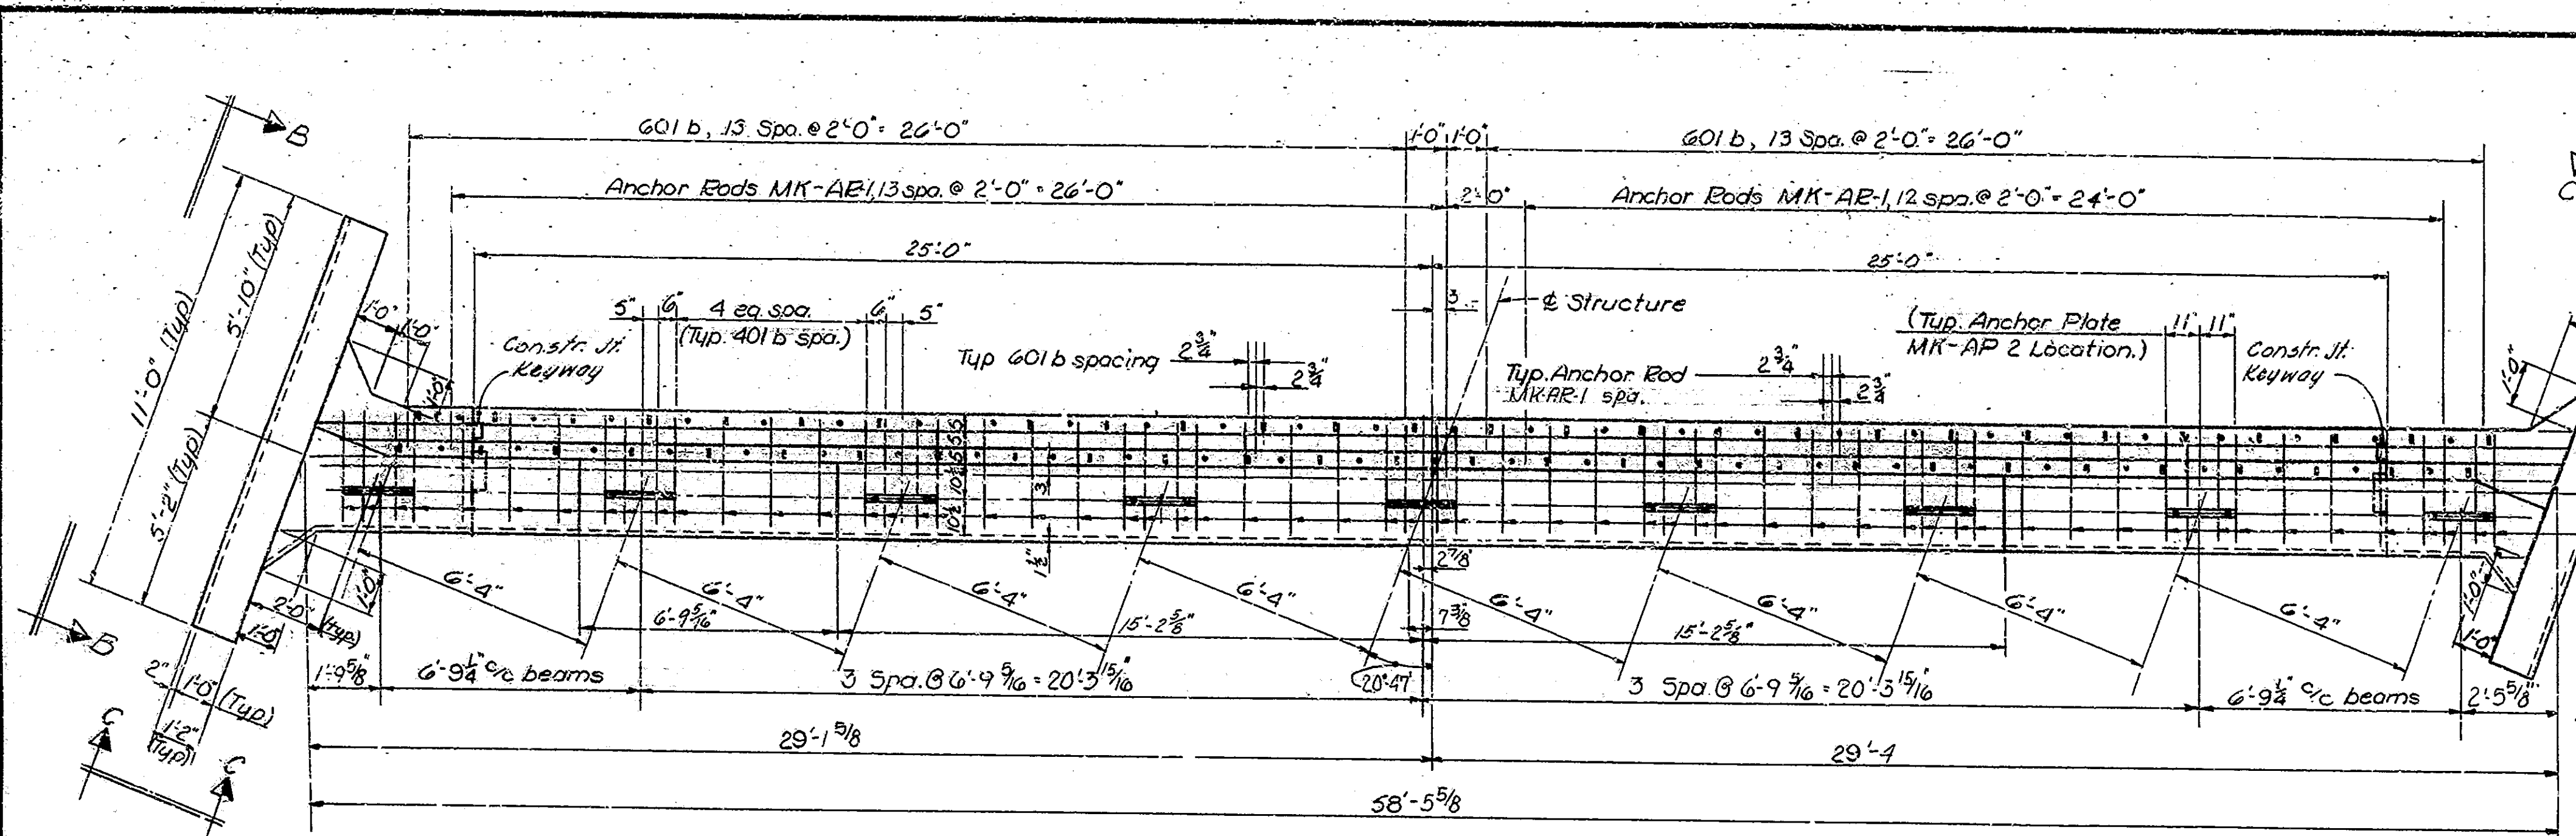 601 b, 13 Spa. @ 2'-0" = 26'-0"
1'-0" 1'-0"
601 b, 13 Spa. @ 2'-0" = 26'-0"
B
Anchor Rods MK-AR-1, 13 spa. @ 2'-0" = 26'-0"
2'-0"
Anchor Rods MK-AR-1, 12 spa. @ 2'-0" = 24'-0"
C
25'-0"
25'-0"
11'-0" (Typ)
5'-10" (Typ)
5'-2" (Typ)
1'-0"
1'-0"
1'-0"
5" 6" 4 eq. spa. 6" 5"
(Typ. 401 b spa.)
Constr. Jt.
Keyway
Typ 601 b spacing 2 3/4"
2 3/4"
3
℄ Structure
Typ. Anchor Rod 2 3/4"
MK-AR-1 spa. 2 3/4"
(Typ. Anchor Plate 11" 11"
MK-AP 2 Location.)
Constr. Jt.
Keyway
1'-0"
5 5 5 5
10 1/2 10 1/2
3
1 1/2"
2 7/8"
6'-4"
6'-4"
6'-4"
6'-4"
6'-4"
6'-4"
6'-4"
6'-4"
B
2'-0"
(typ.)
1'-0"
1'-0"
6'-9 5/16"
15'-2 5/8"
7 3/8"
15'-2 5/8"
1'-0"
1'-0"
2"
1'-0" (Typ)
1'-2"
(Typ)
1'-9 5/8"
6'-9 1/4" c/c beams
3 Spa. @ 6'-9 5/16 = 20'-3 15/16"
20°-47'
3 Spa. @ 6'-9 5/16 = 20'-3 15/16"
6'-9 1/4" c/c beams
2'-5 5/8"
C
C
29'-1 5/8
29'-4
58'-5 5/8